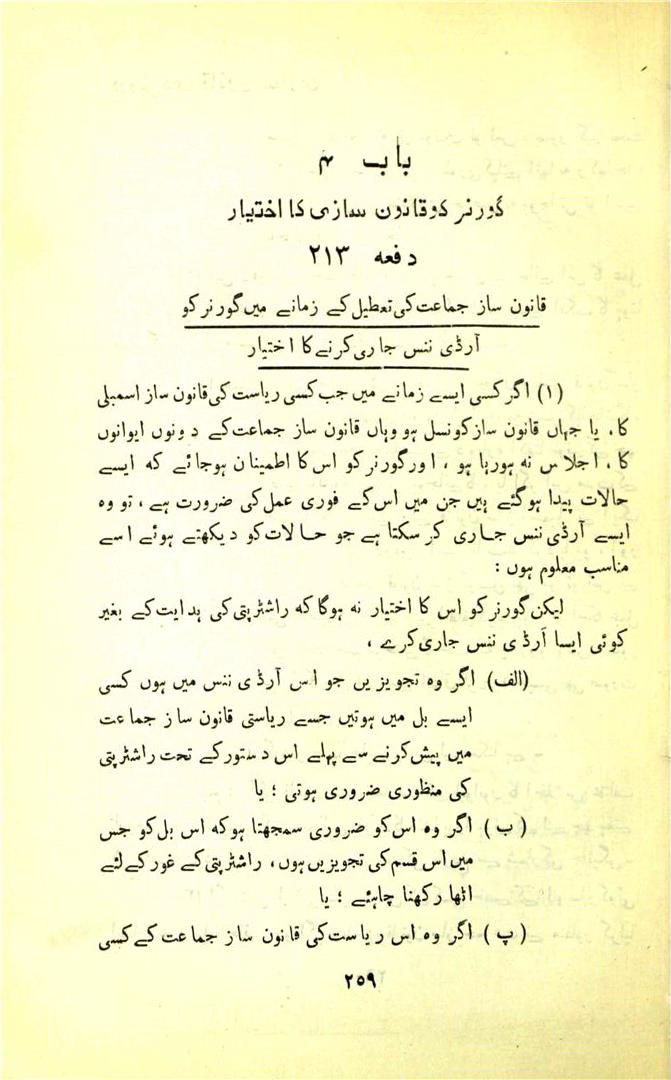 باب ۴
گورنر کو قانون سازی کا اختیار
دفعہ ۲۱۳
قانون ساز جماعت کی تعطیل کے زمانے میں گورنر کو
آرڈی ننس جاری کرنے کا اختیار
(۱) اگر کسی ایسے زمانے میں جب کسی ریاست کی قانون ساز اسمبلی
کا، یا جہاں قانون ساز کونسل ہو وہاں قانون ساز جماعت کے دونوں ایوانوں
کا، اجلاس نہ ہو رہا ہو، اور گورنر کو اس کا اطمینان ہو جائے کہ ایسے
حالات پیدا ہو گئے ہیں جن میں اس کے فوری عمل کی ضرورت ہے، تو وہ
ایسے آرڈی ننس جاری کر سکتا ہے جو حالات کو دیکھتے ہوئے اسے
مناسب معلوم ہوں :
لیکن گورنر کو اس کا اختیار نہ ہوگا کہ راشٹرپتی کی ہدایت کے بغیر
کوئی ایسا آرڈی ننس جاری کرے،
(الف) اگر وہ تجویزیں جو اس آرڈی ننس میں ہوں کسی
ایسے بل میں ہوتیں جسے ریاستی قانون ساز جماعت
میں پیش کرنے سے پہلے اس دستور کے تحت راشٹرپتی
کی منظوری ضروری ہوتی ؛ یا
(ب) اگر وہ اس کو ضروری سمجھتا ہو کہ اس بل کو جس
میں اس قسم کی تجویزیں ہوں، راشٹرپتی کے غور کے لئے
اٹھا رکھنا چاہئے ؛ یا
(پ) اگر وہ اس ریاست کی قانون ساز جماعت کے کسی
۲۵۹